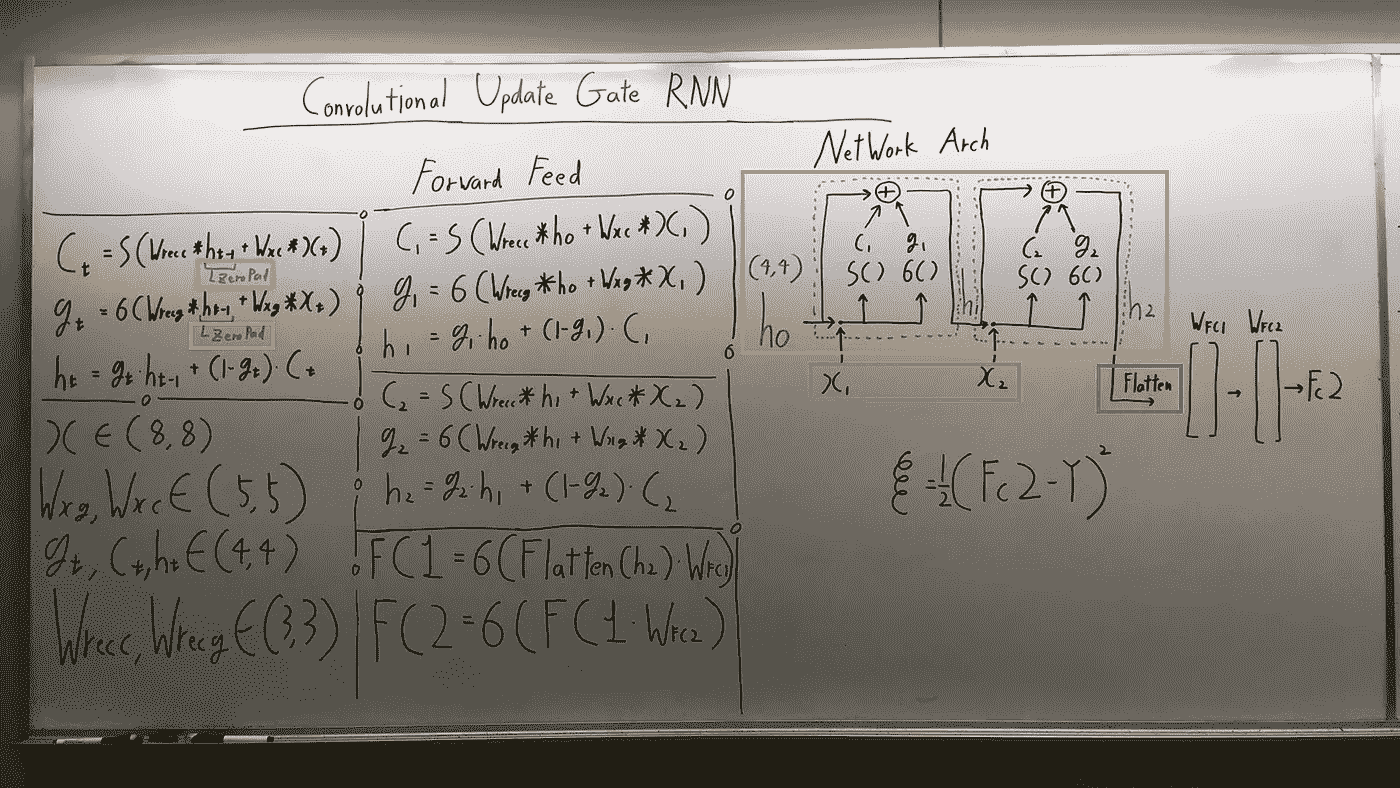 Convolutional Update Gate RNN
Forward Feed
Ct = S(Wrecc * ht-1 + Wxc * Xt)
Zero Pad
gt = 6(Wrecg * ht-1 + Wxg * Xt)
Zero Pad
ht = gt · ht-1 + (1-gt) · Ct
X ∈ (8,8)
Wxg, Wxc ∈ (5,5)
gt, Ct, ht ∈ (4,4)
Wrecc, Wrecg ∈ (3,3)
C1 = S(Wrecc * h0 + Wxc * X1)
g1 = 6(Wrecg * h0 + Wxg * X1)
h1 = g1 · h0 + (1-g1) · C1
C2 = S(Wrecc * h1 + Wxc * X2)
g2 = 6(Wrecg * h1 + Wxg * X2)
h2 = g2 · h1 + (1-g2) · C2
FC1 = 6(Flatten(h2) · WFC1)
FC2 = 6(FC1 · WFC2)
NetWork Arch
+ +
C1 g1 C2 g2
S() 6() S() 6()
(4,4)
h0 h1 h2
X1 X2
Flatten
WFC1 WFC2
Fc2
ξ = 1/2 (Fc2 - Y)²